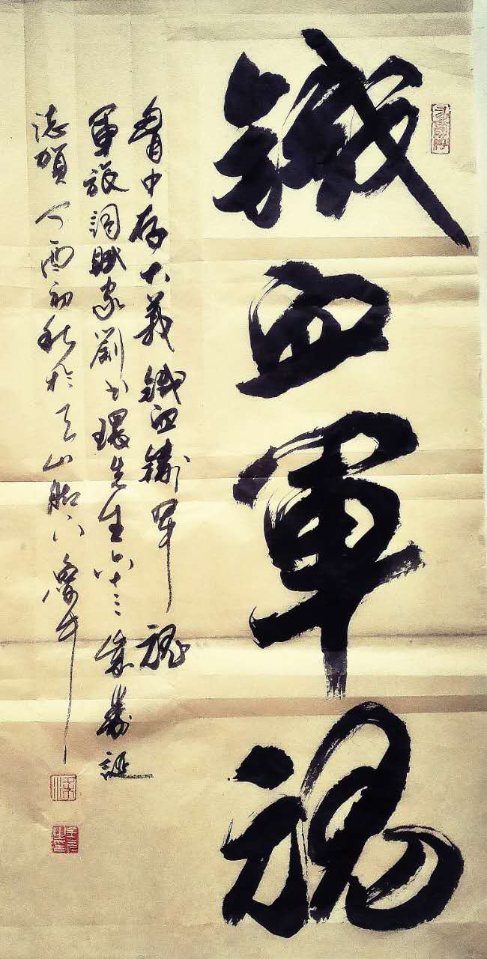 鐵血軍魂
胸中存大義 鐵血鑄軍魂
軍旅詞賦家劉书環先生六十三歲壽誕
誌賀 丁酉初秋於天山腳下